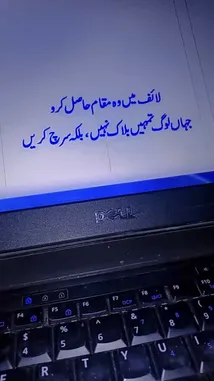 لائف میں وہ مقام حاصل کرو
جہاں لوگ تمہیں بلاک نہیں، بلکہ سرچ کریں
DELL
F4 F5 F6 F7 F8 F9
$ 4 % 5 ^ 6 & 7 * 8
E R T Y U